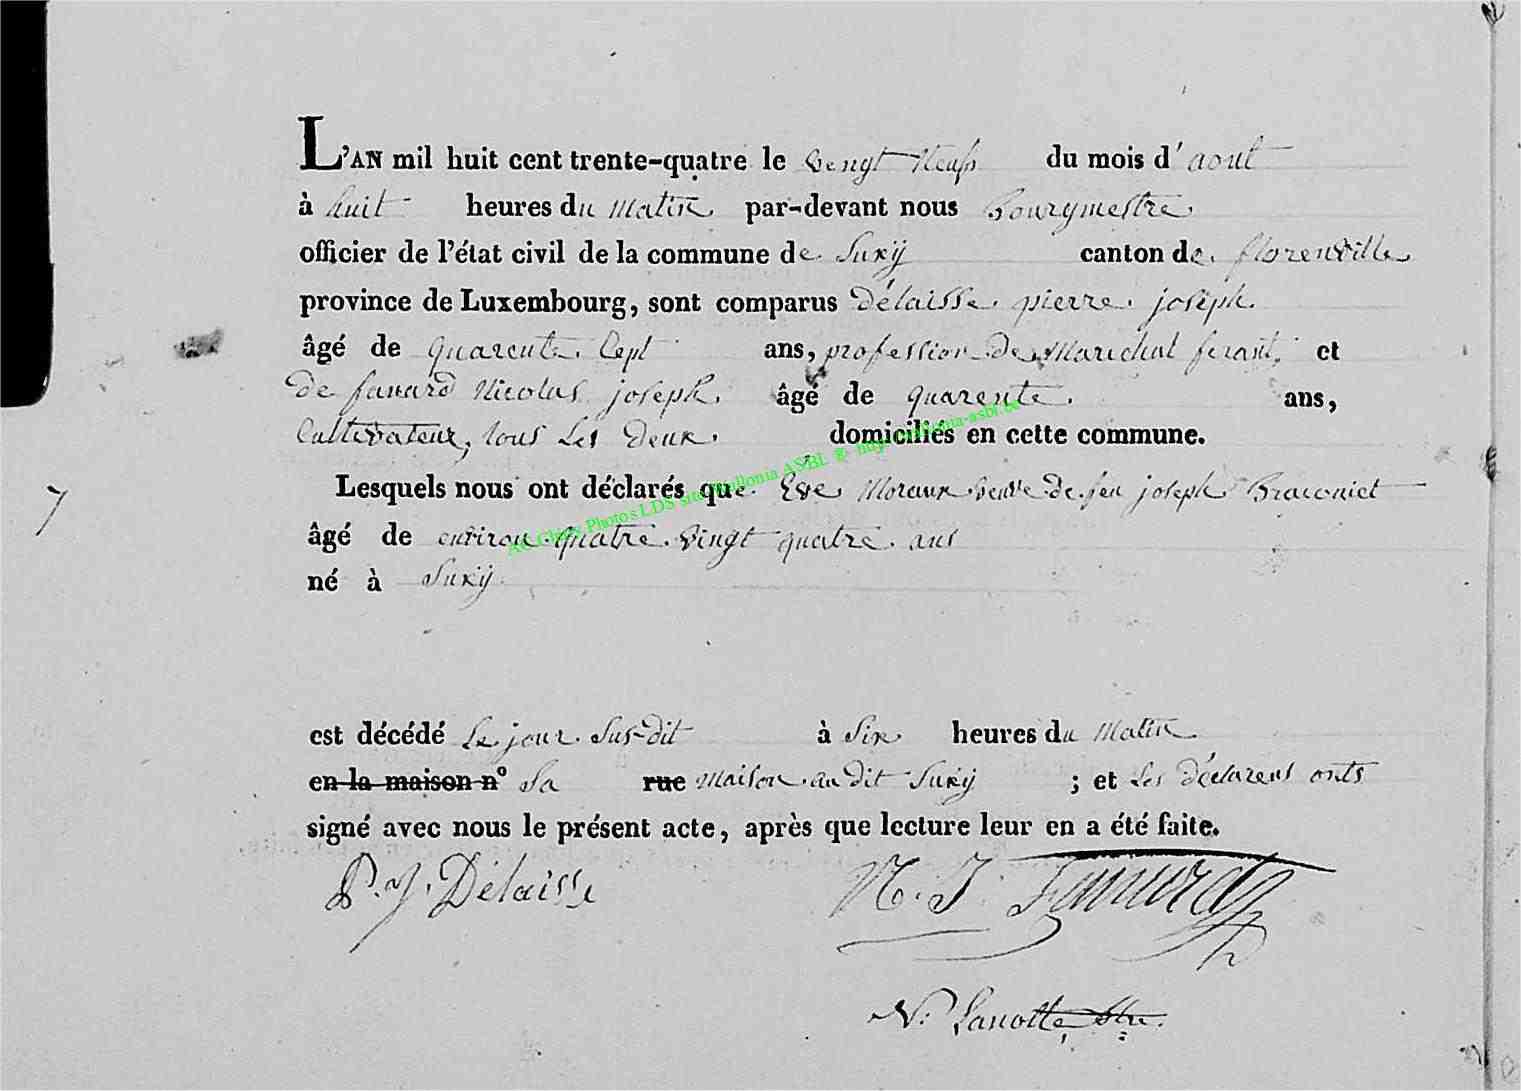 L'AN mil huit cent trente-quatre le vengt Neuf du mois d'aout
à huit heures du Matin par-devant nous Bourgmestre
officier de l'état civil de la commune de Suxÿ canton de florenville
province de Luxembourg, sont comparus Délaisse pierre joseph
âgé de quarente Sept ans, profession de Marichal ferant, et
de fanard Nicolas joseph âgé de quarente ans,
Cultivateur, tous Les Deux domiciliés en cette commune.
7
Lesquels nous ont déclarés que Eve Moraux veuve de feu joseph Braconiet
âgé de environ quatre vingt quatre ans
né à Suxÿ
est décédé Le jour Sus-dit à Six heures du Matin
en la maison n° Sa rue maison au dit Suxÿ ; et Les déclarens onts
signé avec nous le présent acte, après que lecture leur en a été faite.
P. J. Délaisse N. J. Fanard
N. Lanotte
AC Chiny Photos LDS site Wallonia ASBL @ http://wallonia-asbl.be